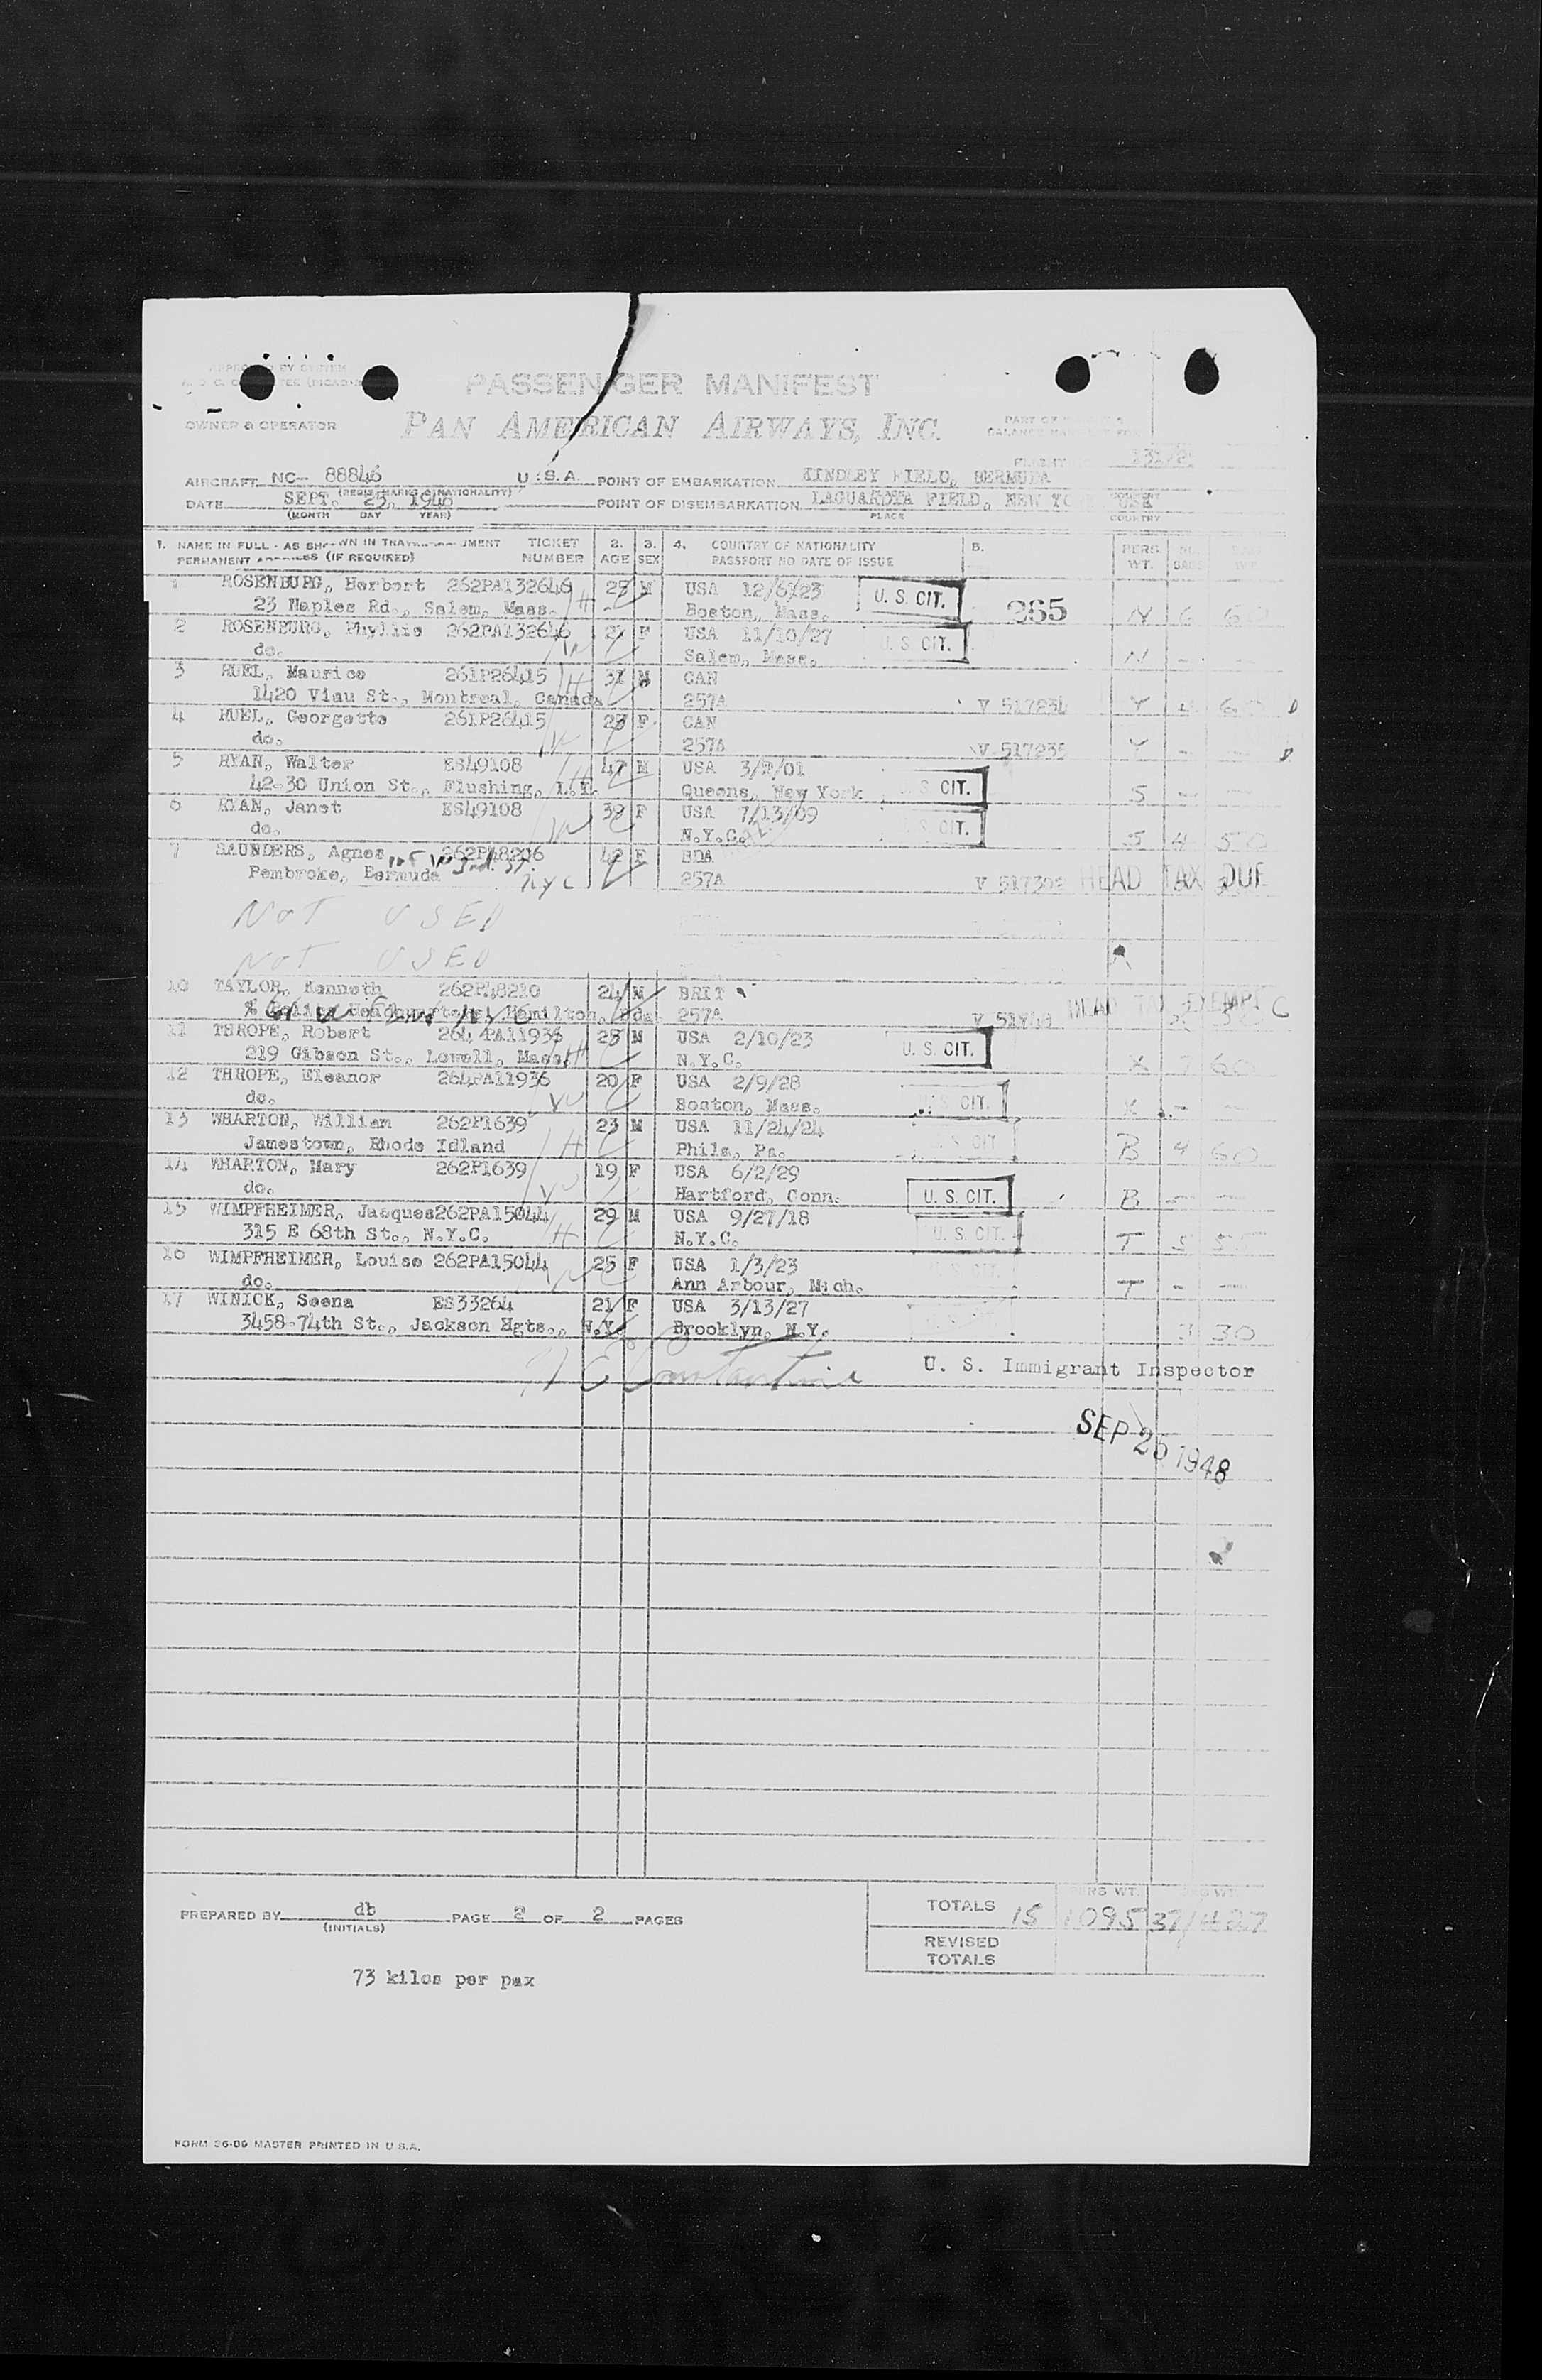 PASSENGER MANIFEST
OWNER & OPERATOR PAN AMERICAN AIRWAYS, INC.
AIRCRAFT NC- 88846 U.S.A. POINT OF EMBARKATION KINDLEY FIELD, BERMUDA
DATE SEPT. 25, 1948 POINT OF DISEMBARKATION LAGUARDIA FIELD, NEW YO USA
(MONTH DAY YEAR) PLACE COUNTRY
1. NAME IN FULL - AS SHOWN IN TRAV UMENT TICKET 2. 3. 4. COUNTRY OF NATIONALITY PERS.
PERMANENT (IF REQUIRED) NUMBER AGE SEX PASSPORT NO DATE OF ISSUE WT.
1 ROSENBURG, Herbert 262PA132646 25 M USA 12/6/23 U. S. CIT.
23 Maples Rd., Salem, Mass. H Boston, Mass. 265 N 6
2 ROSENBURG, Phyllis 262PA132646 F USA 11/10/27 U. S. CIT.
do. Salem, Mass. N -
3 RUEL, Maurice 261P26415 31 M CAN
1420 Viau St., Montreal, Canada 257A V 517234 Y
4 RUEL, Georgette 261P26415 F CAN
do. 257A V 517235 Y - -
5 RYAN, Walter ES49108 47 M USA 3/ /01
42-30 Union St., Flushing, L.I. Queens, New York S. CIT. S - -
6 RYAN, Janet ES49108 39 F USA 7/13/09
do. N.Y.C. S CIT. S 4 50
7 SAUNDERS, Agnes 262P48226 42 F BDA
Pembroke, Bermuda NYC 257A V HEAD TAX DUE
NOT USED
NOT USED
10 TAYLOR, Kenneth 262P48210 24 M BRIT
% Police Headquarters, Hamilton, Bda 257A HEAD TAX EXEMPT C
11 THROPE, Robert 264PA11936 25 M USA 2/10/23 U. S. CIT.
219 Gibson St., Lowell, Mass. H N.Y.C. X 7 60
12 THROPE, Eleanor 264PA11936 20 F USA 2/9/28 CIT.
do. Boston, Mass. X - -
13 WHARTON, William 262P1639 23 M USA 11/24/24
Jamestown, Rhode Idland H Phila, Pa. B 4 60
14 WHARTON, Mary 262P1639 19 F USA 6/2/29
do. Hartford, Conn. U. S. CIT. B - -
15 WIMPFHEIMER, Jacques 262PA15044 29 M USA 9/27/18
315 E 68th St., N.Y.C. H N.Y.C. U. S. CIT. T 5
16 WIMPFHEIMER, Louise 262PA15044 25 F USA 1/3/23
do. Ann Arbour, Mich. T - -
17 WINICK, Seena ES33264 21 F USA 3/13/27
3458-74th St., Jackson Hgts., N.Y. Brooklyn, N.Y. 3 30
U. S. Immigrant Inspector
SEP 25 1948
PREPARED BY db PAGE 2 OF 2 PAGES TOTALS 15 1095 37/427
(INITIALS) REVISED
TOTALS
73 kilos per pax
FORM 36-09 MASTER PRINTED IN U.S.A.